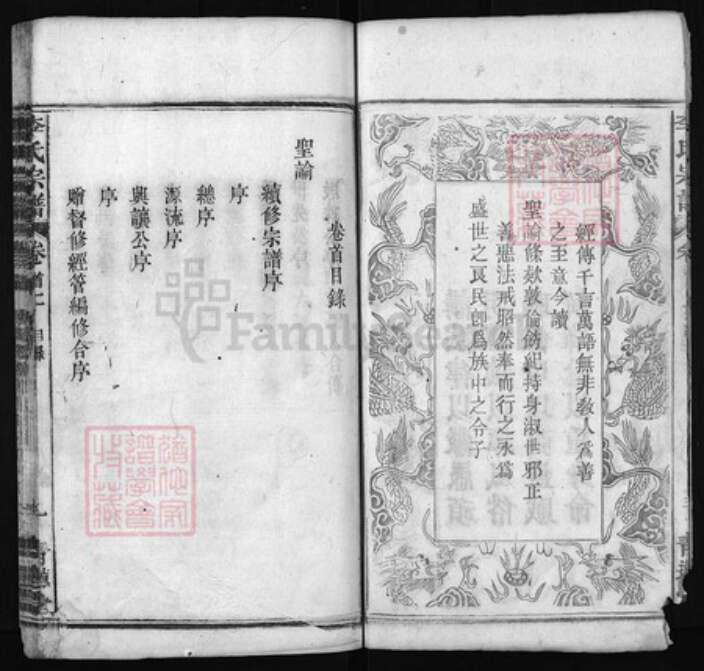 經傳千言萬語無非教人為善
之至意今讀
聖諭條欵敦倫飭紀持身淑世邪正
善惡法戒昭然奉而行之永為
盛世之良民卽為族中之令子
卷首目錄
聖諭
續修宗譜序
序
總序
源流序
與讓公序
序
贈督修經管編修合序
李氏宗譜
卷首上
目錄
FamilySearch